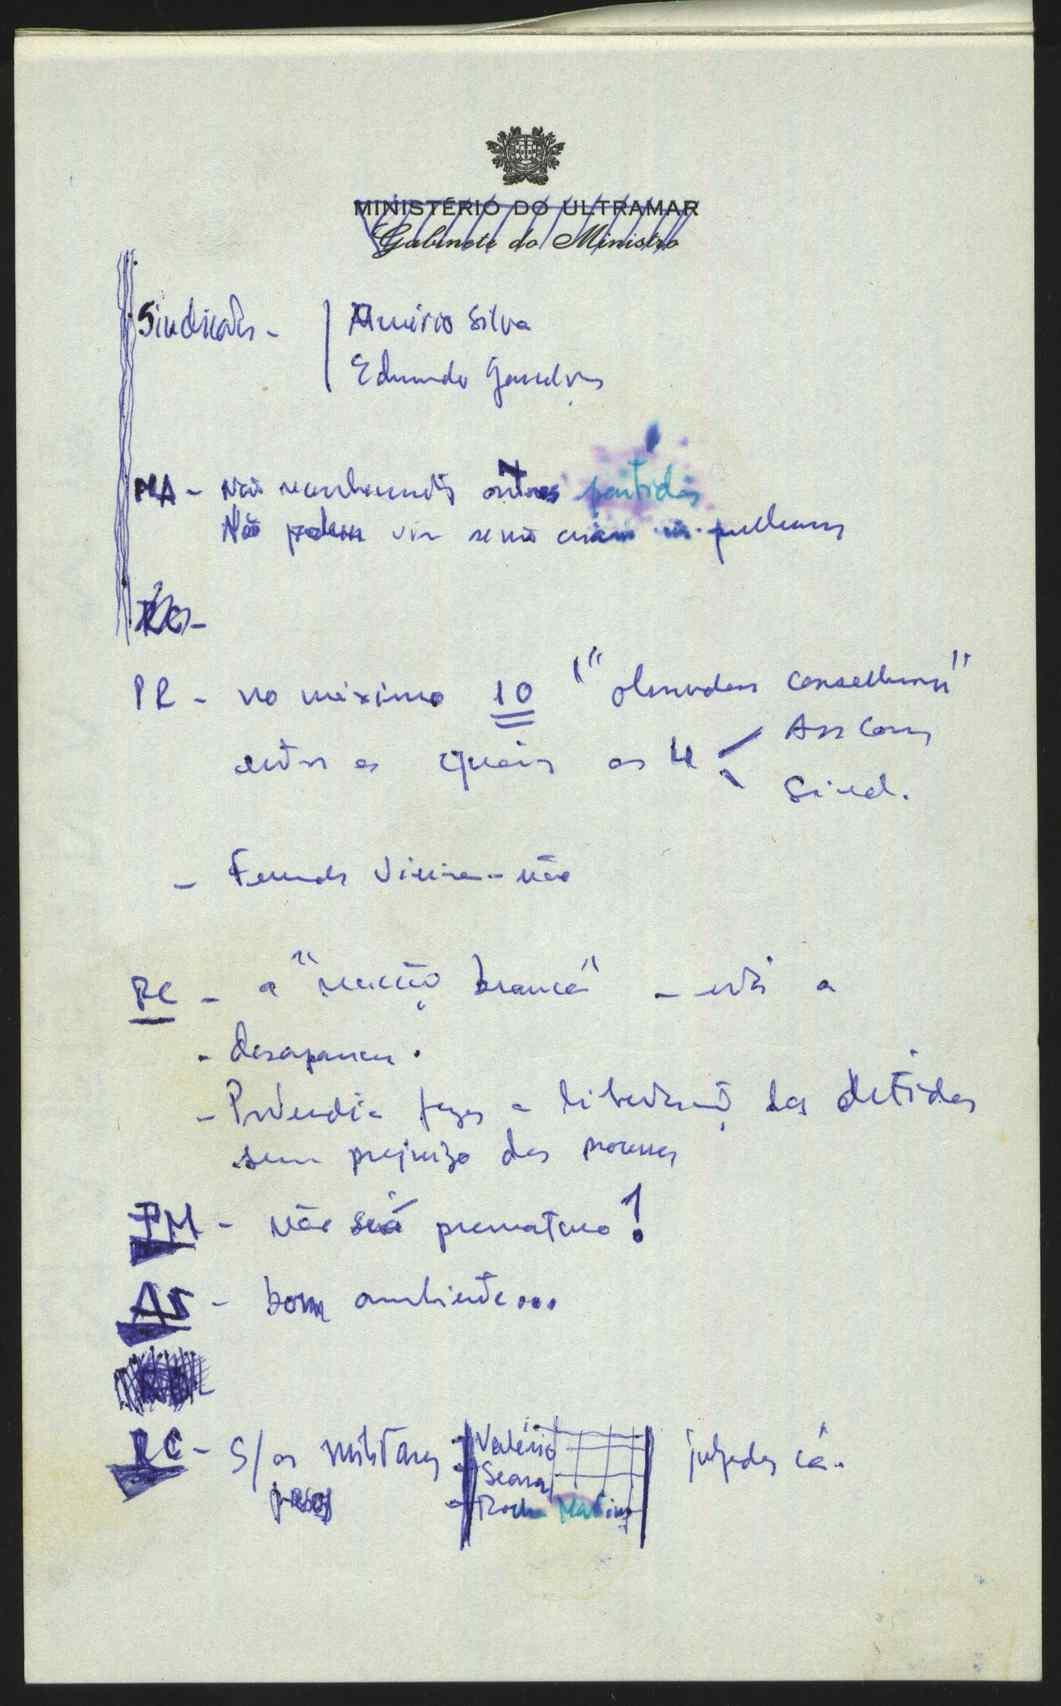 MINISTÉRIO DO ULTRAMAR
Gabinete do Ministro
Sindicatos - Silva
Eduardo
MA - Não outros partidos
Não podem vir senão
PR - no máximo 10 "observadores conselheiros"
entre os quais os 4 Ass Com
Sind.
- não
RC - a "reacção branca" - está a
- desaparecer.
- Pretendia fazer a libertação dos detidos
sem prejuízo dos processos
PM - não será prematuro!
AS - bom ambiente...
RC - S/ os militares Valério julgados cá.
presos Seara
Rocha Martins